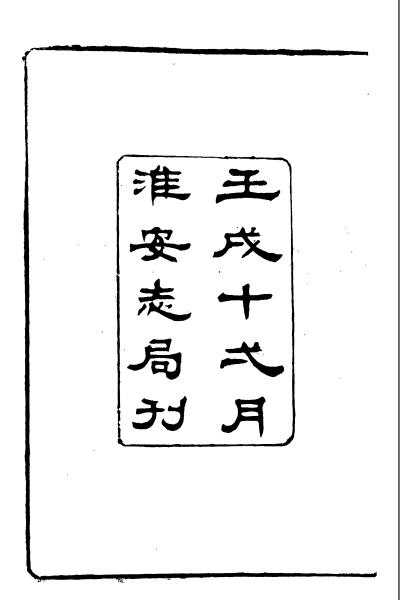 壬戌十弍月
淮安志局刊